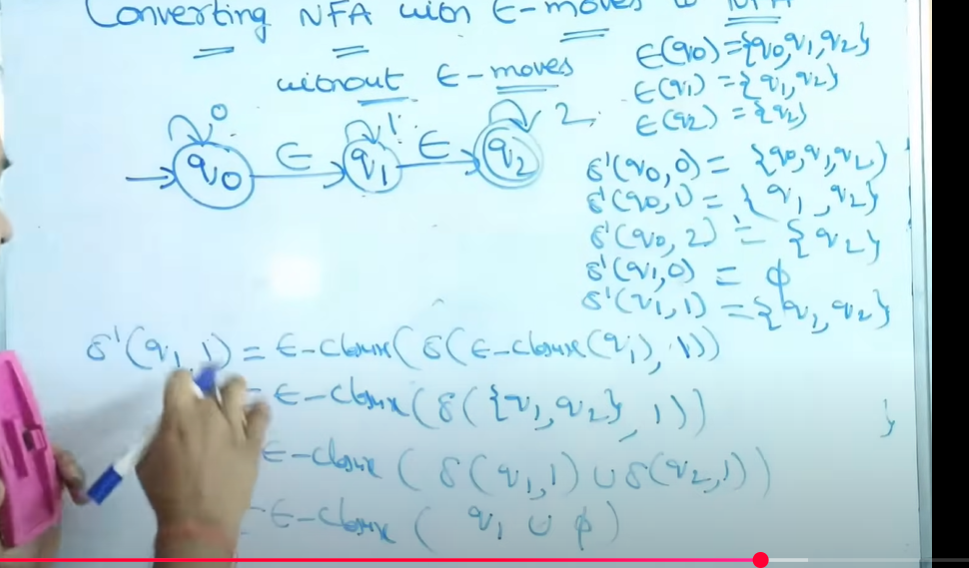 Converting NFA with ∈-moves to NFA
without ∈-moves
∈(q0)={q0,q1,q2}
∈(q1)={q1,q2}
∈(q2)={q2}
0
1
2
q0
∈
q1
∈
q2
δ'(q0,0)={q0,q1,q2}
δ'(q0,1)={q1,q2}
δ'(q0,2)={q2}
δ'(q1,0)=ϕ
δ'(q1,1)={q1,q2}
δ'(q1,1)=∈-closure(δ(∈-closure(q1),1))
=∈-closure(δ({q1,q2},1))
∈-closure(δ(q1,1)∪δ(q2,1))
=∈-closure(q1∪ϕ)
}